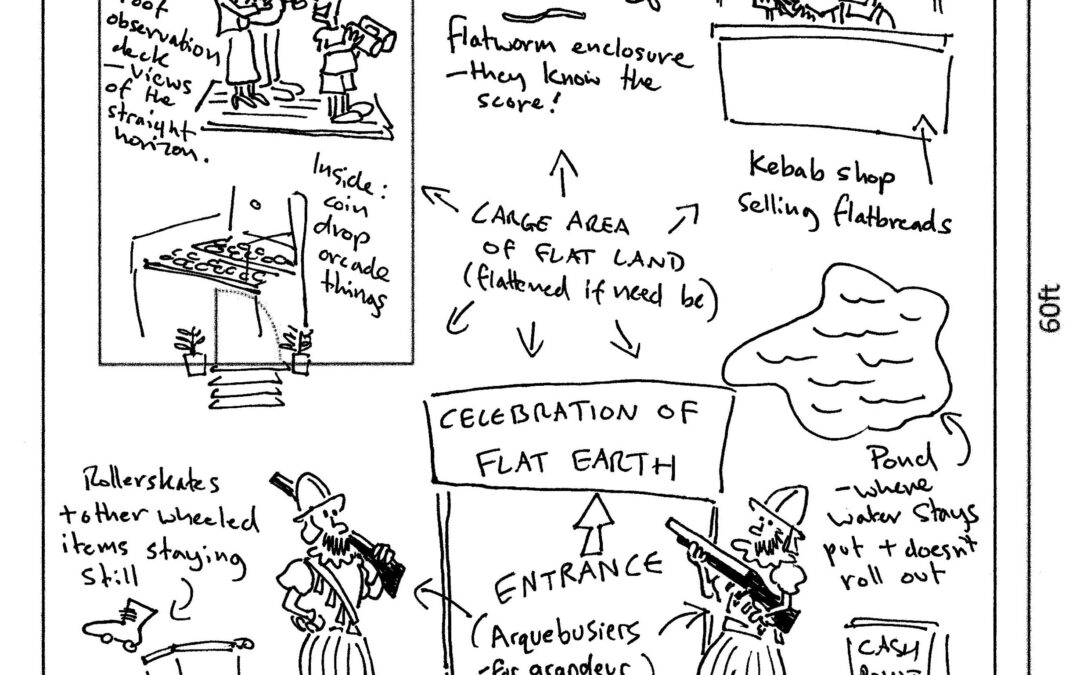 roof
observation
deck
– views
of the
straight
horizon.
Flatworm enclosure
– they know the
score!
Kebab shop
selling flatbreads
Inside:
coin
drop
arcade
things
LARGE AREA
OF FLAT LAND
(flattened if need be)
60ft
CELEBRATION OF
FLAT EARTH
Pond
– where
water stays
put + doesn't
roll out
Rollerskates
+ other wheeled
items staying
still
ENTRANCE
(Arquebusiers
– for grandeur)
CASH
POINT